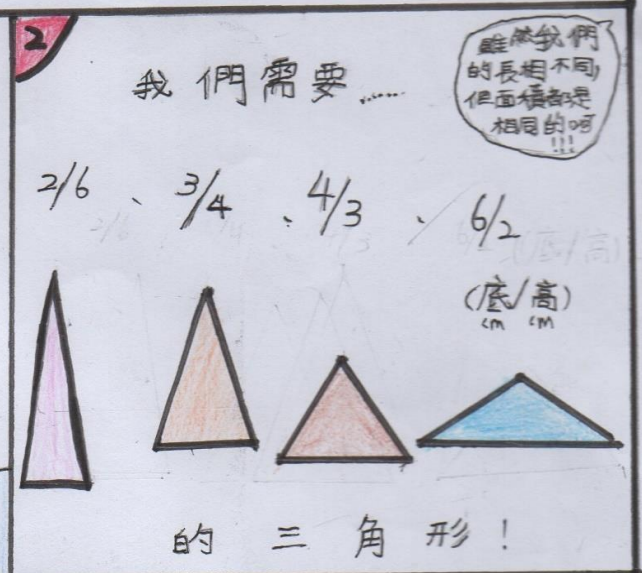 2
我們需要……
雖然我們
的長相不同,
但面積都是
相同的呵
!!!
2/6、3/4、4/3、6/2
(底/高)
cm cm
的三角形!